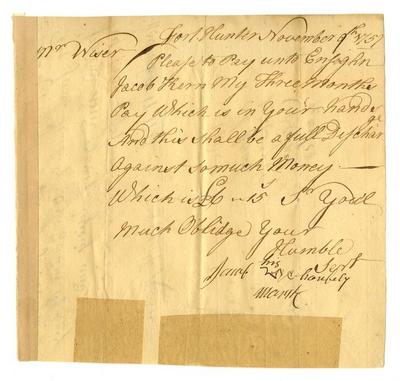 Fort Hunter November 9th 1757
Mr Wiser
Please to Pay unto Ensoghn
Jacob Kern My Three Months
Pay Which is in Your hands
And this Shall be a full Dischar
ge
Against so much Money —
Which is £6 – 15s Sr Youll
Much Oblidge Your
Humble
Sert
Jacob his
mark